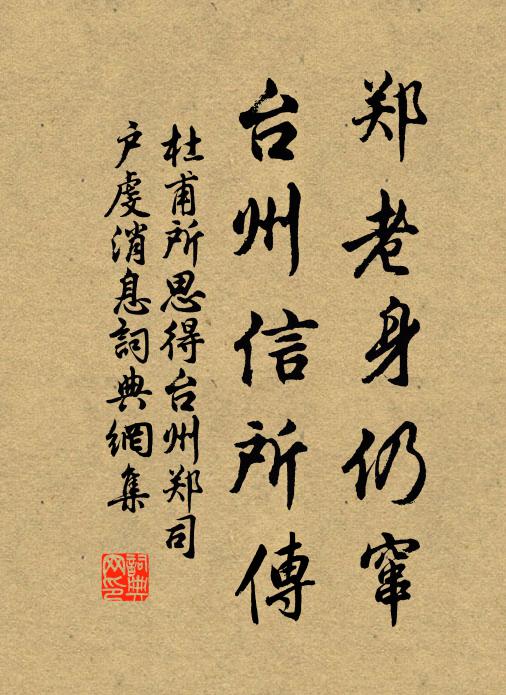 郑老身仍窜
台州信所傳
杜甫所思得台州郑司
户虔消息詞典網集
詞典网印